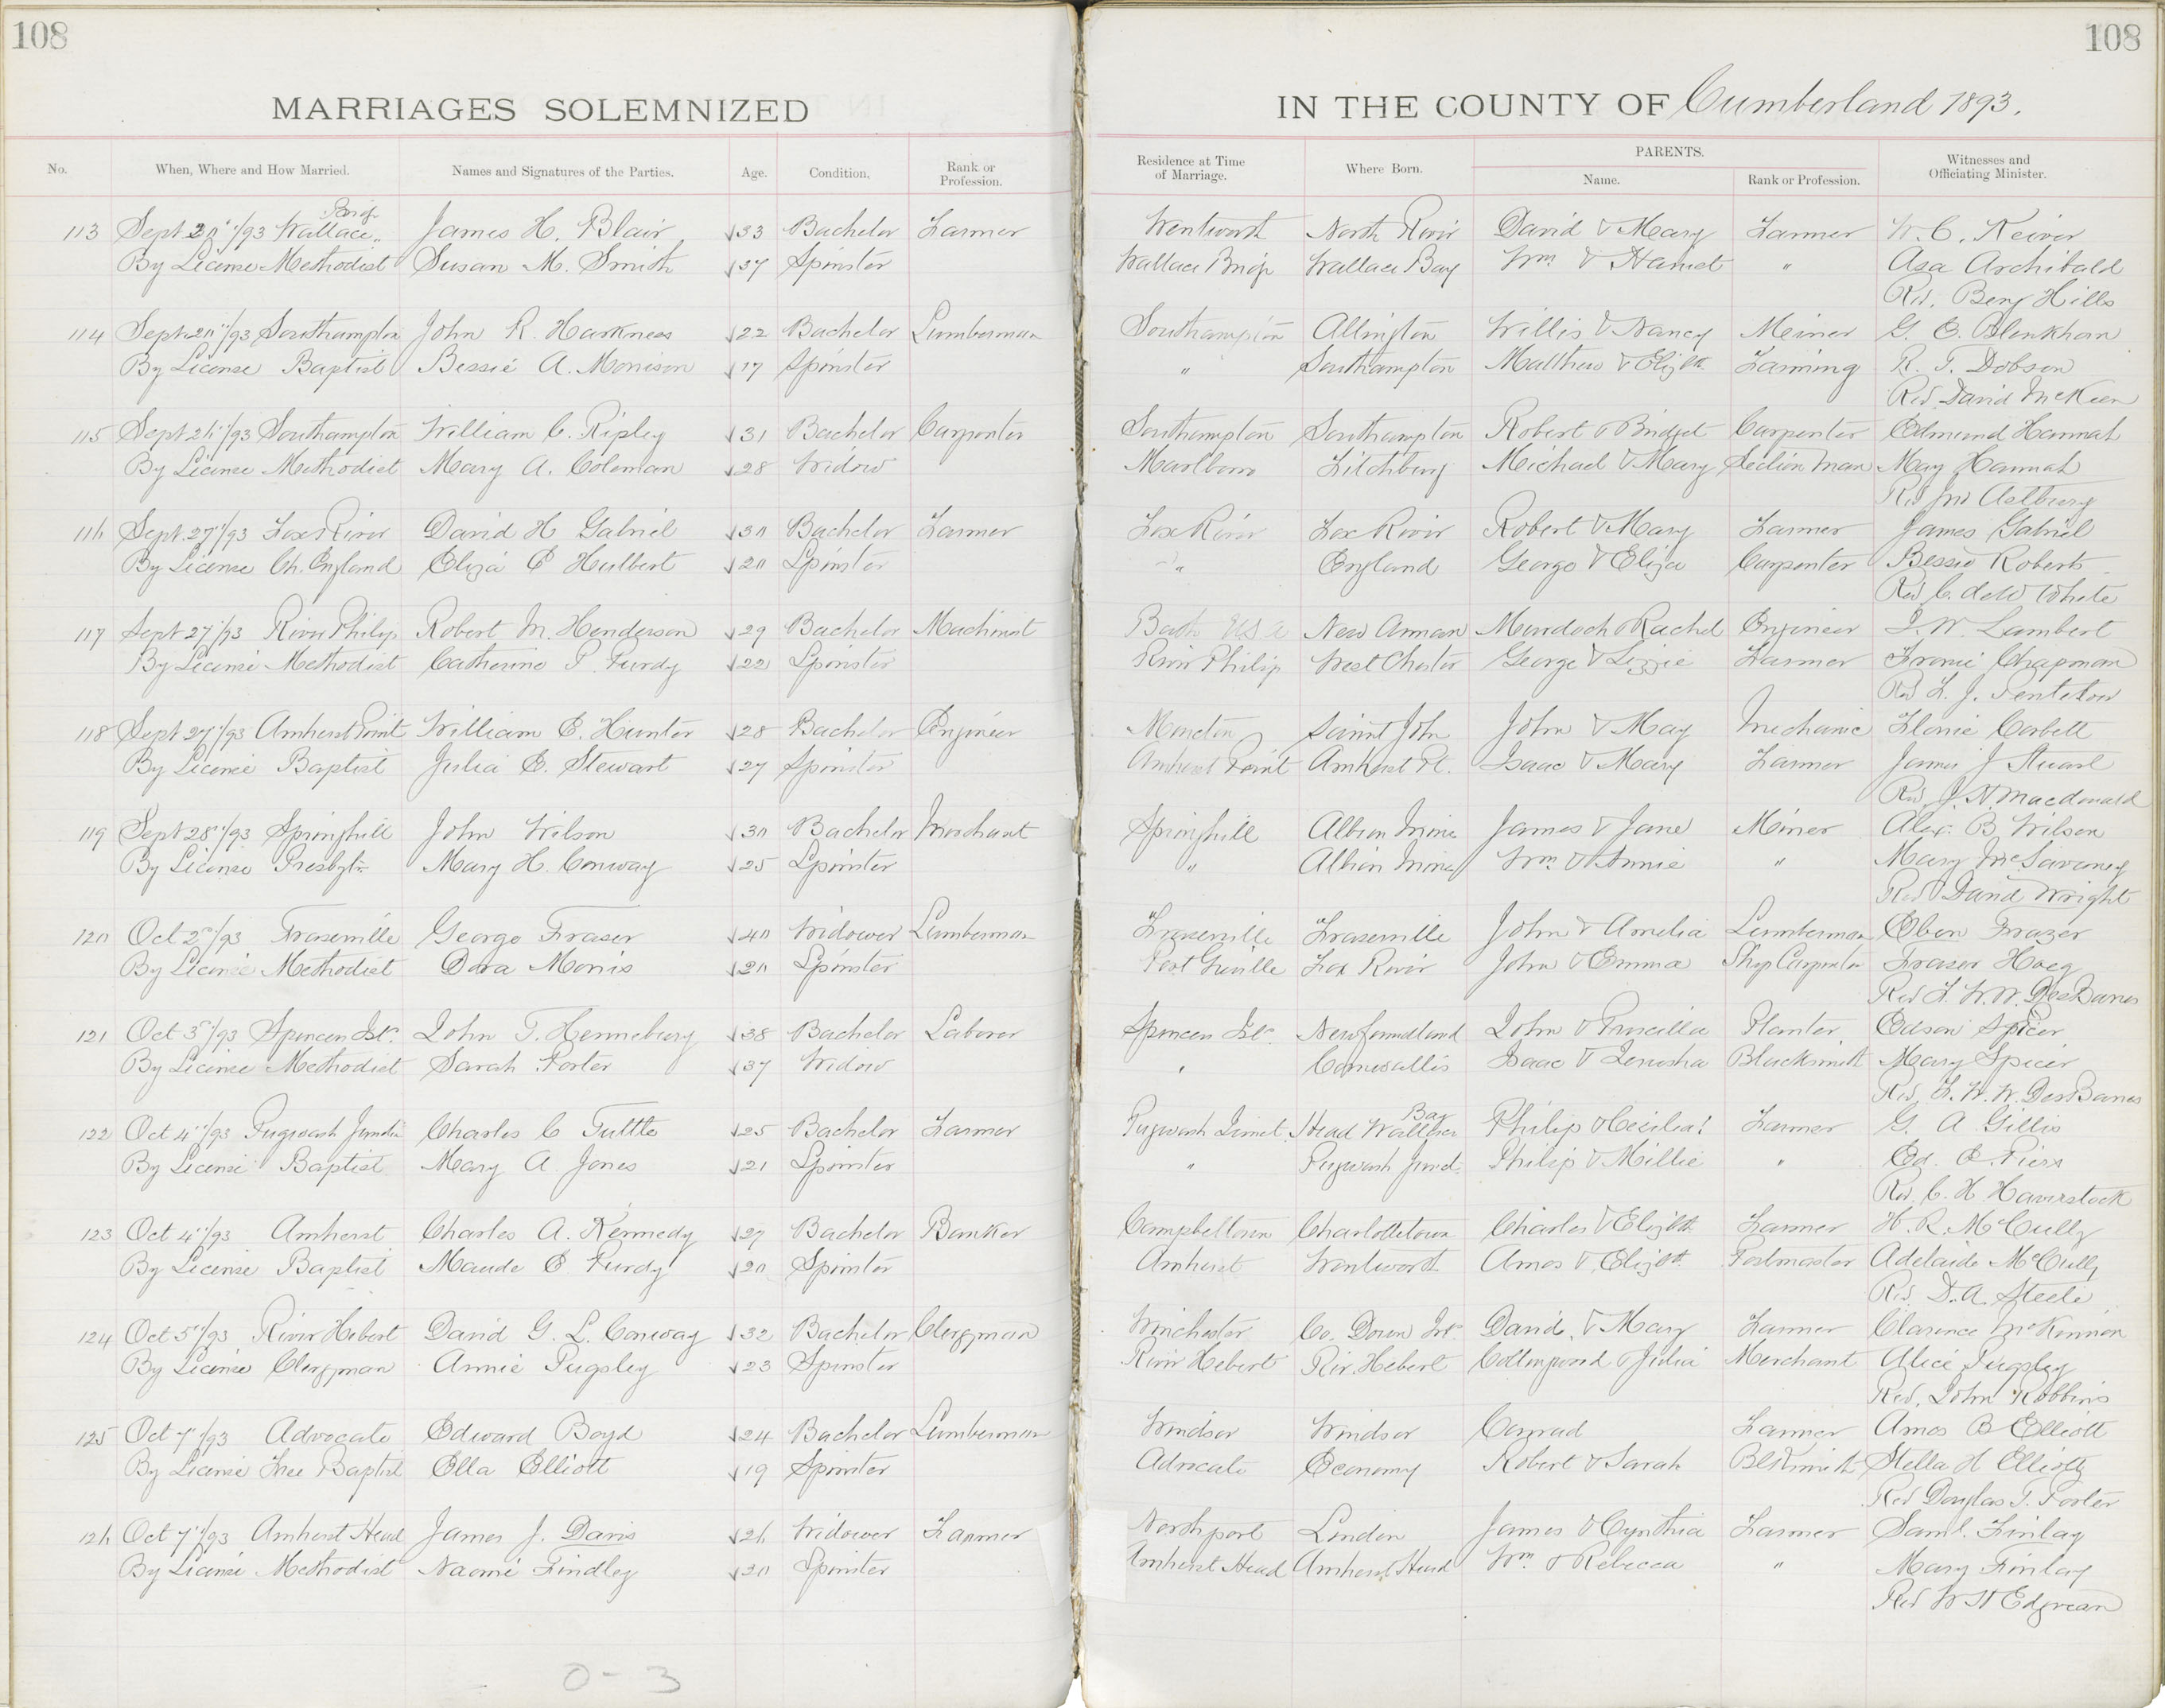 108
108
MARRIAGES SOLEMNIZED
IN THE COUNTY OF Cumberland 1893.
No. When, Where and How Married. Names and Signatures of the Parties. Age. Condition. Rank or Profession. Residence at Time of Marriage. Where Born. PARENTS. Name. Rank or Profession. Witnesses and Officiating Minister.
113 Sept 20"/93 Wallace Bridge James H. Blair 33 Bachelor Farmer Wentworth North River David & Mary Farmer W. C. Keiver
By License Methodist Susan M. Smith 37 Spinster Wallace Bridge Wallace Bay Wm & Harriet " Asa Archibald
Rev. Benj Hills
114 Sept 20"/93 Southampton John R. Harkness 22 Bachelor Lumberman Southampton Athington Willis & Nancy Meiner G. E. Blenkhorn
By License Baptist Bessie A. Morrison 17 Spinster " Southampton Matthew & Elizth Farming R. T. Dobson
Rev David McKeen
115 Sept 26"/93 Southampton William C. Ripley 31 Bachelor Carpenter Southampton Southampton Robert & Bridget Carpenter Edmund Hannah
By License Methodist Mary A. Coleman 28 Widow Marlboro Fitchburg Michael & Mary Section man May Hannah
Rev Jno Astbury
116 Sept. 27"/93 Fox River David H Gabriel 30 Bachelor Farmer Fox River Fox River Robert & Mary Farmer James Gabriel
By License Ch. England Eliza E Hulbert 20 Spinster " England George & Eliza Carpenter Bessie Roberts
Rev C. deW White
117 Sept 27"/93 River Philip Robert M. Henderson 29 Bachelor Machinist Bath U.S.A New Annan Murdoch & Rachel Engineer J. W. Lambert
By License Methodist Catherine P. Purdy 22 Spinster River Philip West Chester George & Lizzie Farmer Fronie Chapman
Rev F. J. Pentelow
118 Sept 27"/93 Amherst Point William E. Hunter 28 Bachelor Engineer Moncton Saint John John & May Mechanic Flonie Corbett
By License Baptist Julia E. Stewart 27 Spinster Amherst Point Amherst Pt. Isaac & Mary Farmer James J Stuart
Rev. J. N. Macdonald
119 Sept 28"/93 Springhill John Wilson 30 Bachelor Merchant Springhill Albion Mine James & Jane Miner Alex. B. Wilson
By License Presbytn Mary H. Conway 25 Spinster " Albion Mines Wm & Annie " Mary McSavaney
Rev David Wright
120 Oct 2"/93 Fraserville George Fraser 40 Widower Lumberman Fraserville Fraserville John & Amelia Lumberman Eben Frazer
By License Methodist Dora Morris 20 Spinster Port Greville Fox River John & Emma Ship Carpenter Fraser Hoeg
Rev F. W. W. DesBarres
121 Oct 3"/93 Spencers Isld. John T. Henneburg 38 Bachelor Laborer Spencers Isld. Newfoundland John & Priscilla Planter Edson Spicer
By License Methodist Sarah Porter 37 Widow " Cornwallis Isaac & Jerusha Blacksmith Mary Spicer
Rev. F. W. W. DesBarres
122 Oct 4"/93 Pugwash Junctn Charles C Tuttle 25 Bachelor Farmer Pugwash Junct. Head Wallace Bay Philip & Cecilia Farmer G. A Gillis
By License Baptist Mary A. Jones 21 Spinster " Pugwash Junct. Philip & Millie " Ed. E. Piers
Rev. C. H Haverstock
123 Oct 4"/93 Amherst Charles A. Kennedy 27 Bachelor Banker Campbelltown Charlottetown Charles & Elizth Farmer H. R. McCully
By License Baptist Maude E Purdy 20 Spinster Amherst Wentworth Amos & Elizth Postmaster Adelaide McCully
Rev. D. A. Steele
124 Oct 5"/93 River Hebert David G. L. Conway 32 Bachelor Clergman Winchester Co. Down Ire. David & Mary Farmer Clarence McKinnon
By License Clergman Annie Pugsley 23 Spinster River Hebert Riv. Hebert Collingwood & Julia Merchant Alice Pugsley
Rev. John Robbins
125 Oct 7"/93 Advocate Edward Boyd 24 Bachelor Lumberman Windsor Windsor Conrad Farmer Amos B Elliott
By License Free Baptist Ella Elliott 19 Spinster Advocate Economy Robert & Sarah Blksmith Stella H Elliott
Rev Douglas T. Porter
126 Oct 7"/93 Amherst Head James J. Davis 26 Widower Farmer Northport Linden James & Cynthia Farmer Saml. Finlay
By License Methodist Naomi Findley 20 Spinster Amherst Head Amherst Head Wm & Rebecca " Mary Finlay
Rev W H Edyvean
0-3